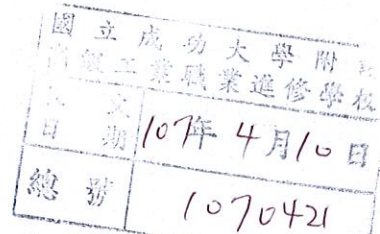 國立成功大學附設
高級工業職業進修學校
收文日期 107年4月10日
總號 1070421